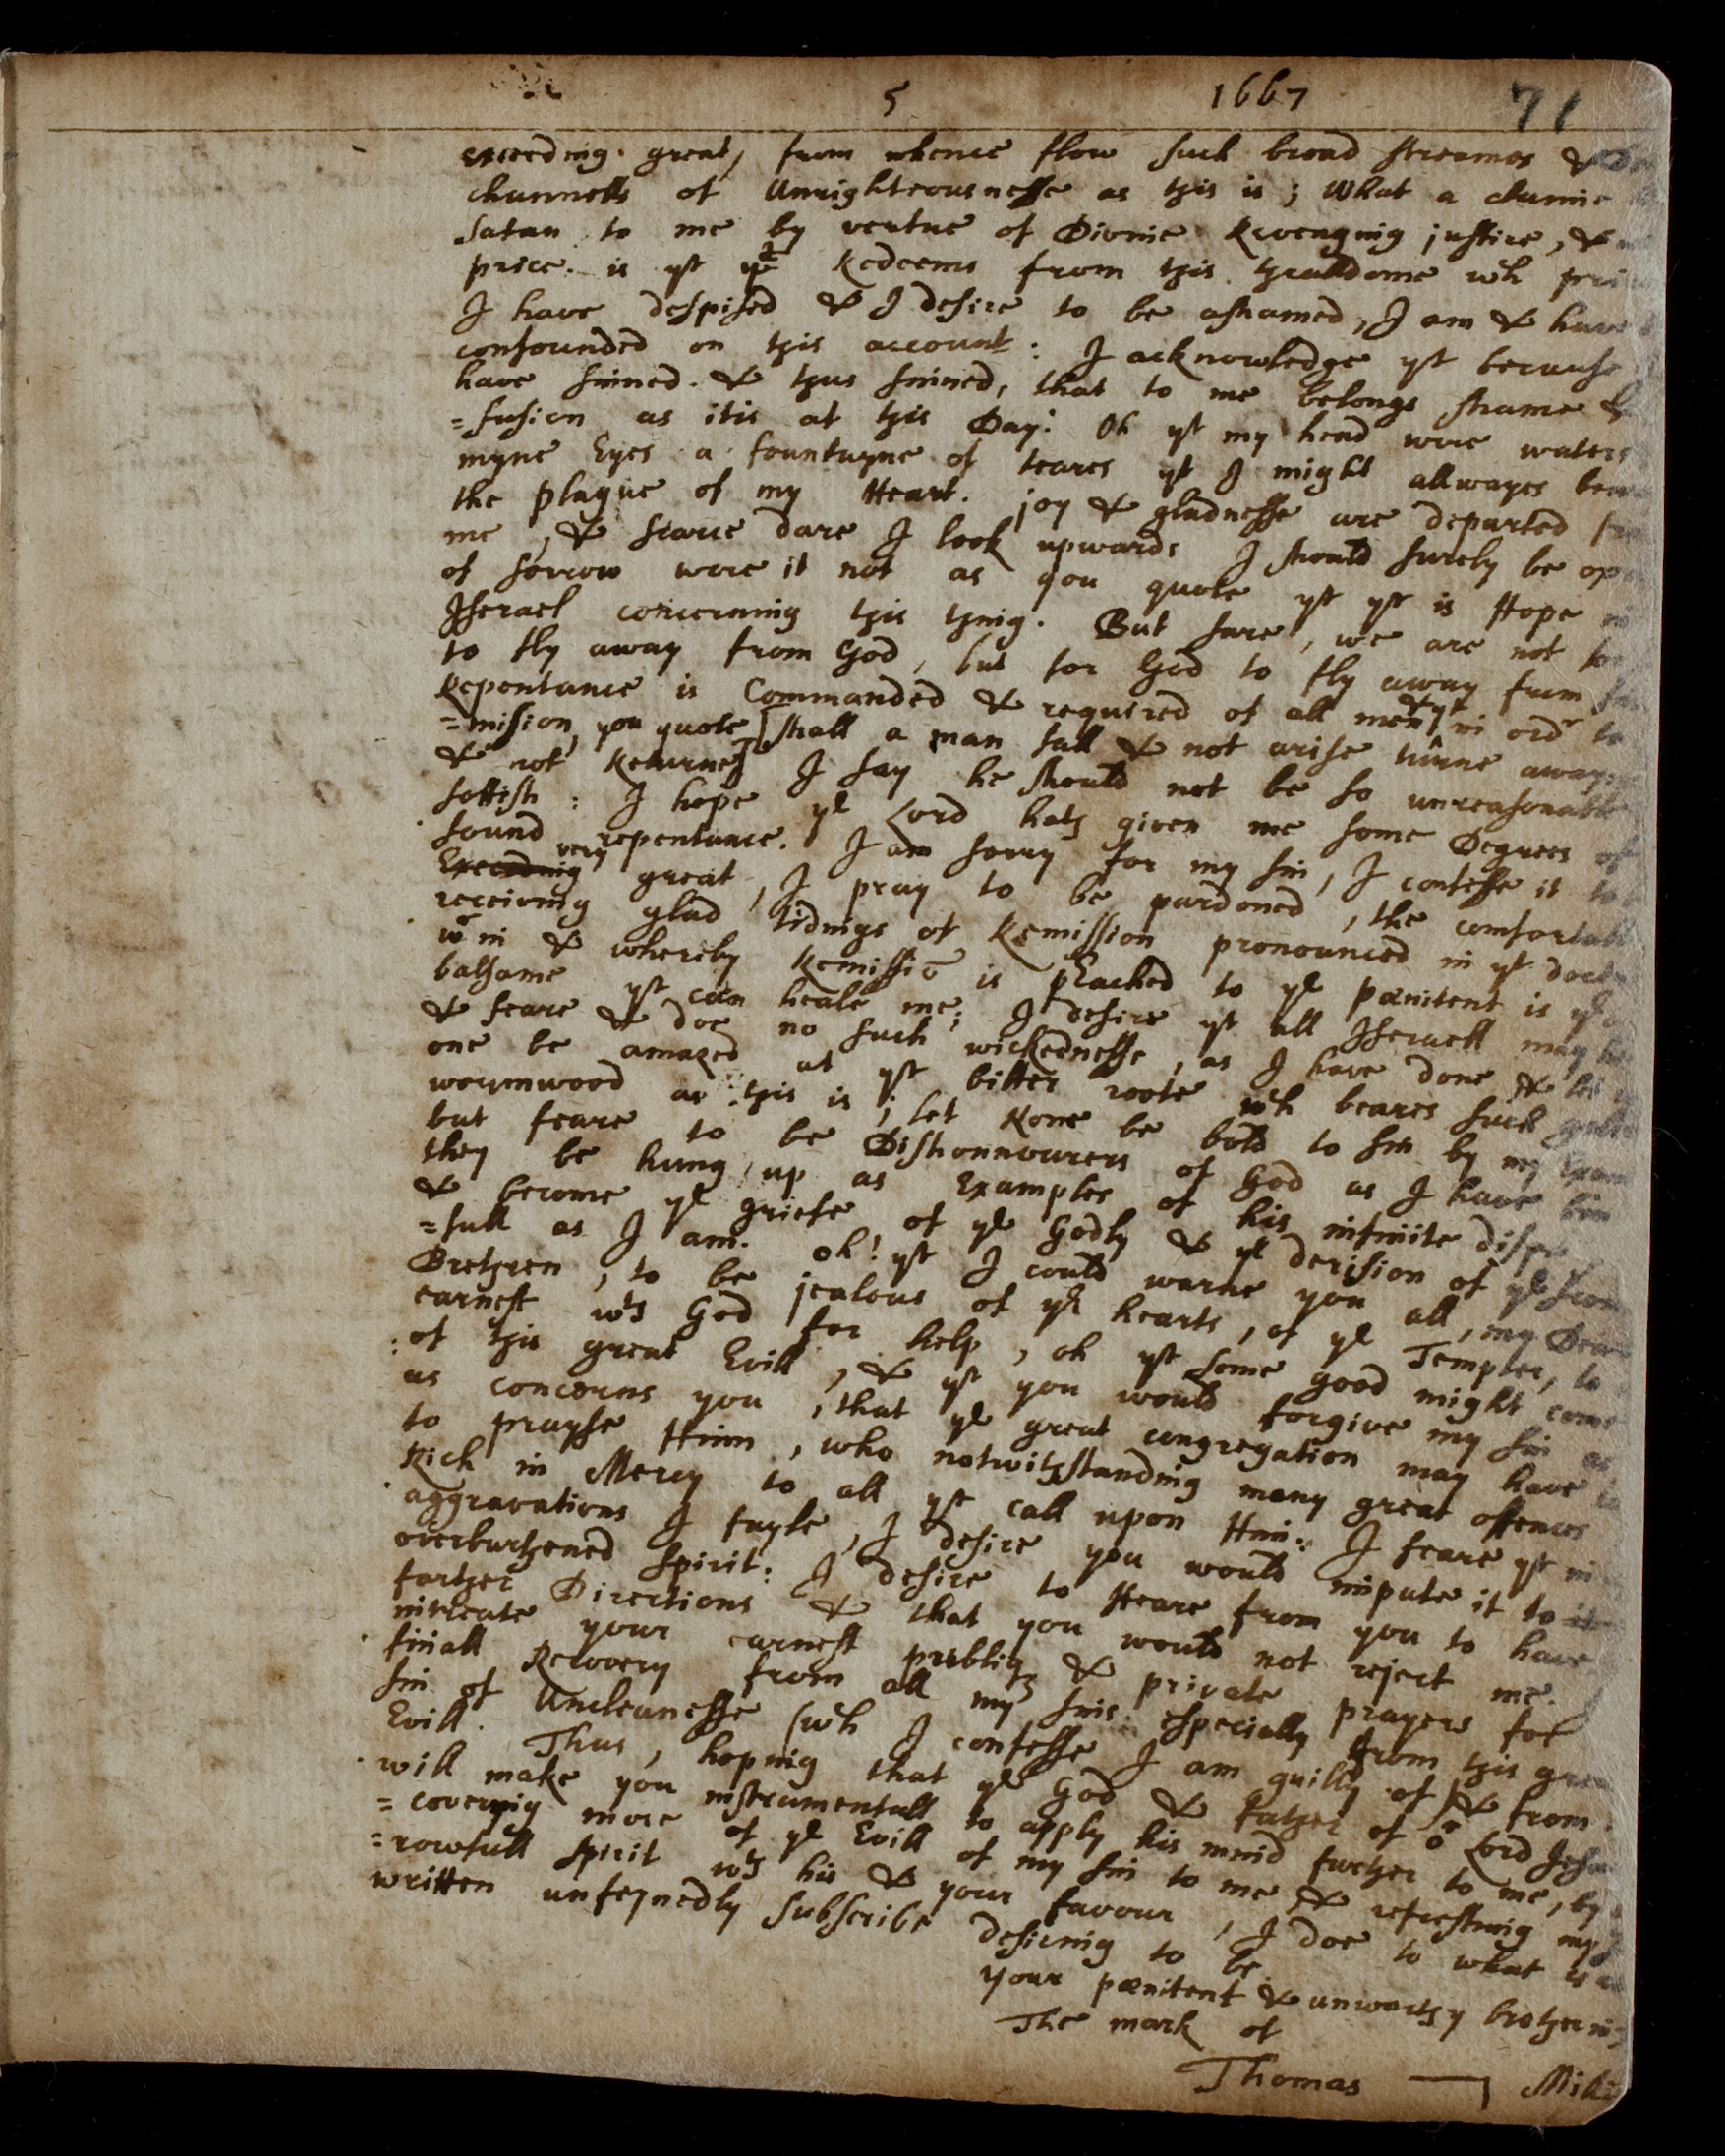 5 1667 71
exceeding great, from whence flow such broad streames &
channells of Unrighteousnesse as this is; What a
Satan to me by vertue of Divine Revenging justice, &
price is yt yt Redeems from this thralldome wch
I have despised & I desire to be ashamed, I am & have
confounded on this account: I acknowledge yt because
have sinned & thus sinned, that to me belongs shame &
=fusion as itis at this Day: Oh yt my head were waters
myne Eyes a fountayne of teares yt I might allwayes
the plague of my Heart. joy & gladnesse are departed
me, & scarce dare I look upwards I should surely be
of sorrow were it not as you quote yt yr is Hope
Iserael concerning this thing. But sure, we are not
to fly away from God, but for God to fly away from
Repentance is Commanded & required of all men & yt in ordr to
=mission, you quote [shall a man fall & not arise turne away
& not Returne] I say he should not be so unreasonable
sottish: I hope ye Lord hath given me some Degrees of
sound repentance. I am sorry for my sin, I confesse it to
Exceeding very great, I pray to be pardoned, the comfortable
receiving glad tidings of Remission pronounced in yt
wr in & whereby Remissiō is pRached to ye pænitent is ye
balsame yt can heale me; I desire yt all Iseraell may
& feare & doe no such wickednesse, as I have done &
one be amazed at yt bitter roote wch beares such
wormwood as this is; let None be bold to sin by my
but feare to be Dishonnourers of God as I have
they be hung up as Examples of his infinite
& become ye griefe of ye Godly & ye derision of ye
=full as I am. oh! yt I could warne you all, my
Brethren, to be jealous of yr hearts, of ye Tempter, to
earnest wth God for help, oh yt some good might come
of this great Evill, & yt you would forgive my sin as
as concerns you, that ye great congregation may have
to prayse Him, who notwithstanding many great offences
Rich in Mercy to all yt call upon Him: I feare yt in
aggravations I fayle, I desire you would impute it to
overburthened spirit: I desire to Heare from you to have
farther Directions & that you would not reject me. I
intreate your earnest publiq & private prayers for
finall Recovery from all my sins especially from this
sin of Uncleanesse (wch I confesse I am guilty of) & from
Evill. Thus, hoping that ye God & father of or Lord
will make you instrumentall to apply his mind further to me, by
=covering more of ye Evill of my sin to me & refreshing my
=rowfull spirit wth his & your favour, I doe to what is
written unfeynedly subscribe desiring to be
your pænitent & unworthy brother
The mark of
Thomas